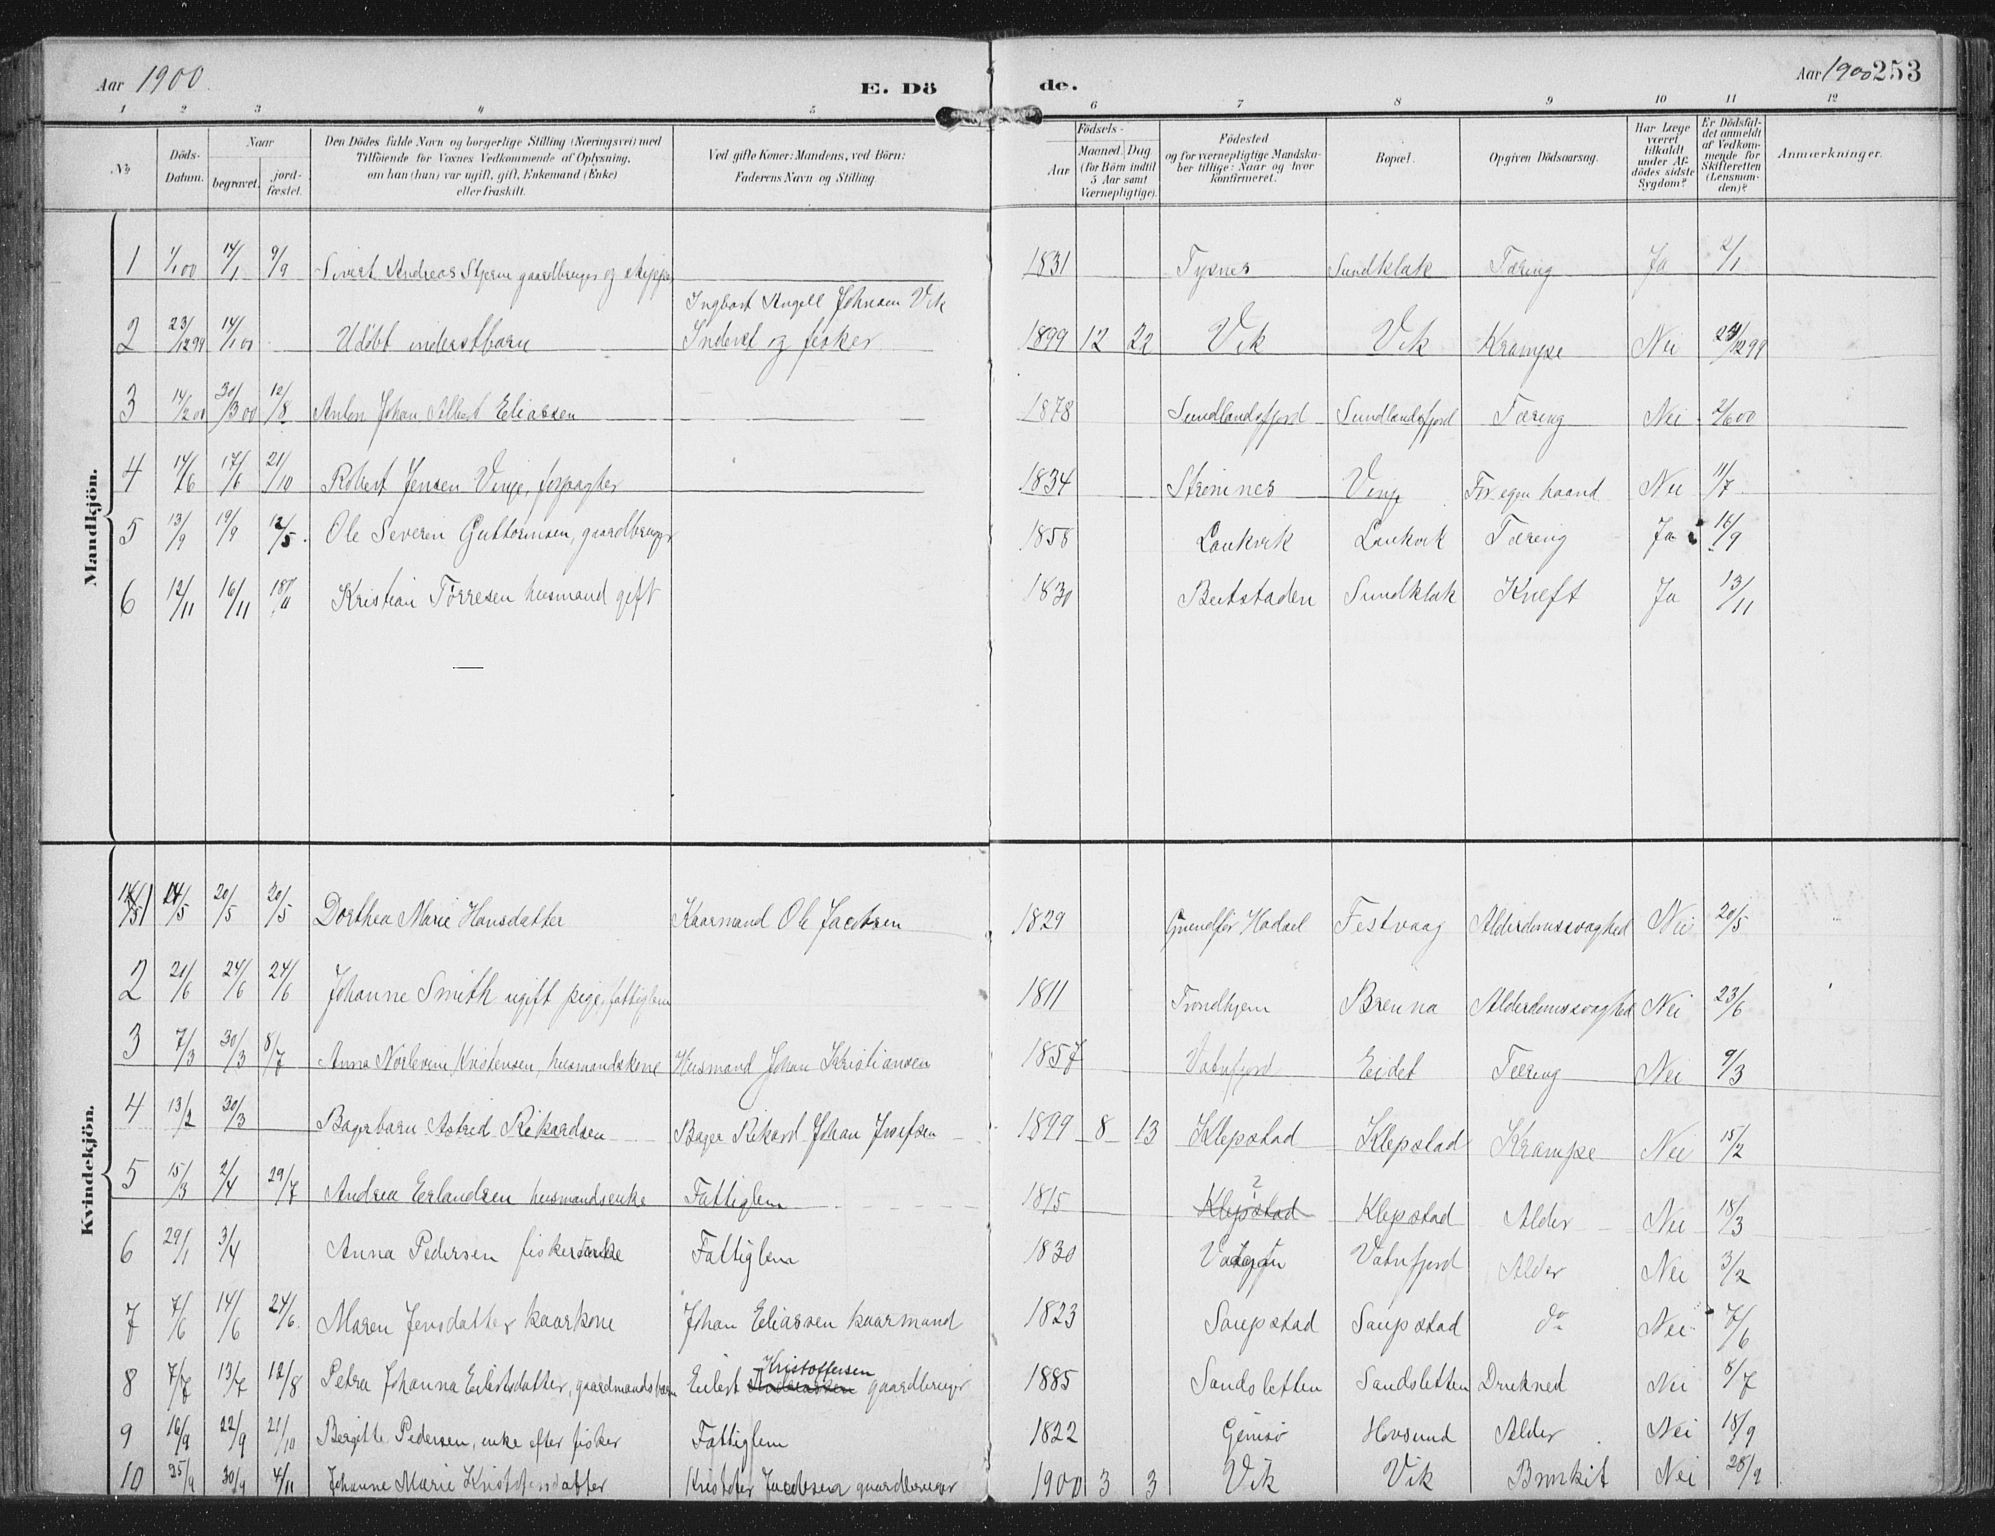 Aar 1900. E. Dö de. Aar 1900 253
1 2 3 4 5 6 7 8 9 10 11 12
No
Döds-Datum.
Naar
begravet.
jord-fæstet.
Den Dödes fulde Navn og borgerlige Stilling (Næringsvei) med
Tilföiende for Voxnes Vedkommende af Oplysning,
om han (hun) var ugift, gift, Enkemand (Enke)
eller fraskilt.
Ved gifte Koner: Mandens, ved Börn:
Faderens Navn og Stilling
Födsels-
Aar
Maaned. Dag
(for Börn indtil
5 Aar samt
Værnepligtige).
Födested
og for værnepligtige Mandska-
ber tillige: Naar og hvor
konfirmeret.
Bopæl.
Opgiven Dödsaarsag.
Har Læge
været
tilkaldt
under Af-
dödes sidste
Sygdom?
Er Dödsfal-
det anmeldt
af Vedkom-
mende for
Skifteretten
(Lensman-
den)?
Anmærkninger.
Mandkjön.
1 1/1 00 14/1 9/9 Sivert Andreas Stjerne gaardbruger og skipper 1831 Tysnes Sundklak Tæring Ja 2/1
Ingbart Angell Johnsen Vik
2 23/12 99 14/1 00 Udöbt inderstbarn Inderst og fisker 1899 12 22 Vik Vik Krampe Nei 24/12 99
3 14/2 00 30/3 00 12/8 Anton Johan Albert Eliassen 1878 Sundlandsfjord Sundlandsfjord Tæring Nei 2/6 00
4 14/6 17/6 21/10 Robert Jensen Vinje, forpagter 1834 Strömnes Vinje For egen haand Nei 11/7
5 13/9 19/9 12/5 Ole Severin Guttormsen, gaardbruger 1858 Laukvik Laukvik Tæring Ja 16/9
6 12/11 16/11 18/11 Kristian Törresen husmand gift 1830 Beitstaden Sundklak Kræft Ja 13/11
Kvindekjön.
1 14/5 20/5 20/5 Dorthea Marie Hansdatter Kaarmand Ole Jacobsen 1829 Grundför Hadsel Festvaag Alderdomssvaghed Nei 20/5
2 21/6 24/6 24/6 Johanne Smith ugift pige, fattiglem 1811 Trondhjem Brenna Alderdomssvaghed Nei 23/6
3 7/3 30/3 8/7 Anna Norlevine Kristensen, husmandskone Husmand Johan Kristiansen 1857 Vatnfjord Eidet Tæring Nei 9/3
4 13/2 30/3 Bagerbarn Astrid Rikardsen Bager Rikard Johan Josefsen 1899 8 13 Klepstad Klepstad Krampe Nei 15/2
5 15/3 2/4 29/7 Andrea Erlandsen husmandsenke Fattiglem 1815 Klepstad ? Klepstad Alder Nei 18/3
6 29/1 3/4 Anna Pedersen fiskerenke Fattiglem 1830 Vatnfjord Alder Nei 3/2
7 7/6 14/6 24/6 Maren Jensdatter kaarkone Johan Eliassen kaarmand 1823 Saupstad Saupstad do Nei 7/6
8 7/7 13/7 12/8 Petra Johanna Eilertsdatter, gaardmandsbarn Eilert Andreassen Kristoffersen gaardbruger 1885 Sandsletten Sandsletten Drukned Nei 8/7
9 16/9 22/9 21/10 Bergitte Pedersen, enke efter fisker Fattiglem 1822 Gimsö Hovsund Alder Nei 18/9
10 25/9 30/9 4/11 Johanne Marie Kristofersdatter Kristofer Jacobsen gaardbruger 1900 3 3 Vik Vik Bronkit Nei 28/9